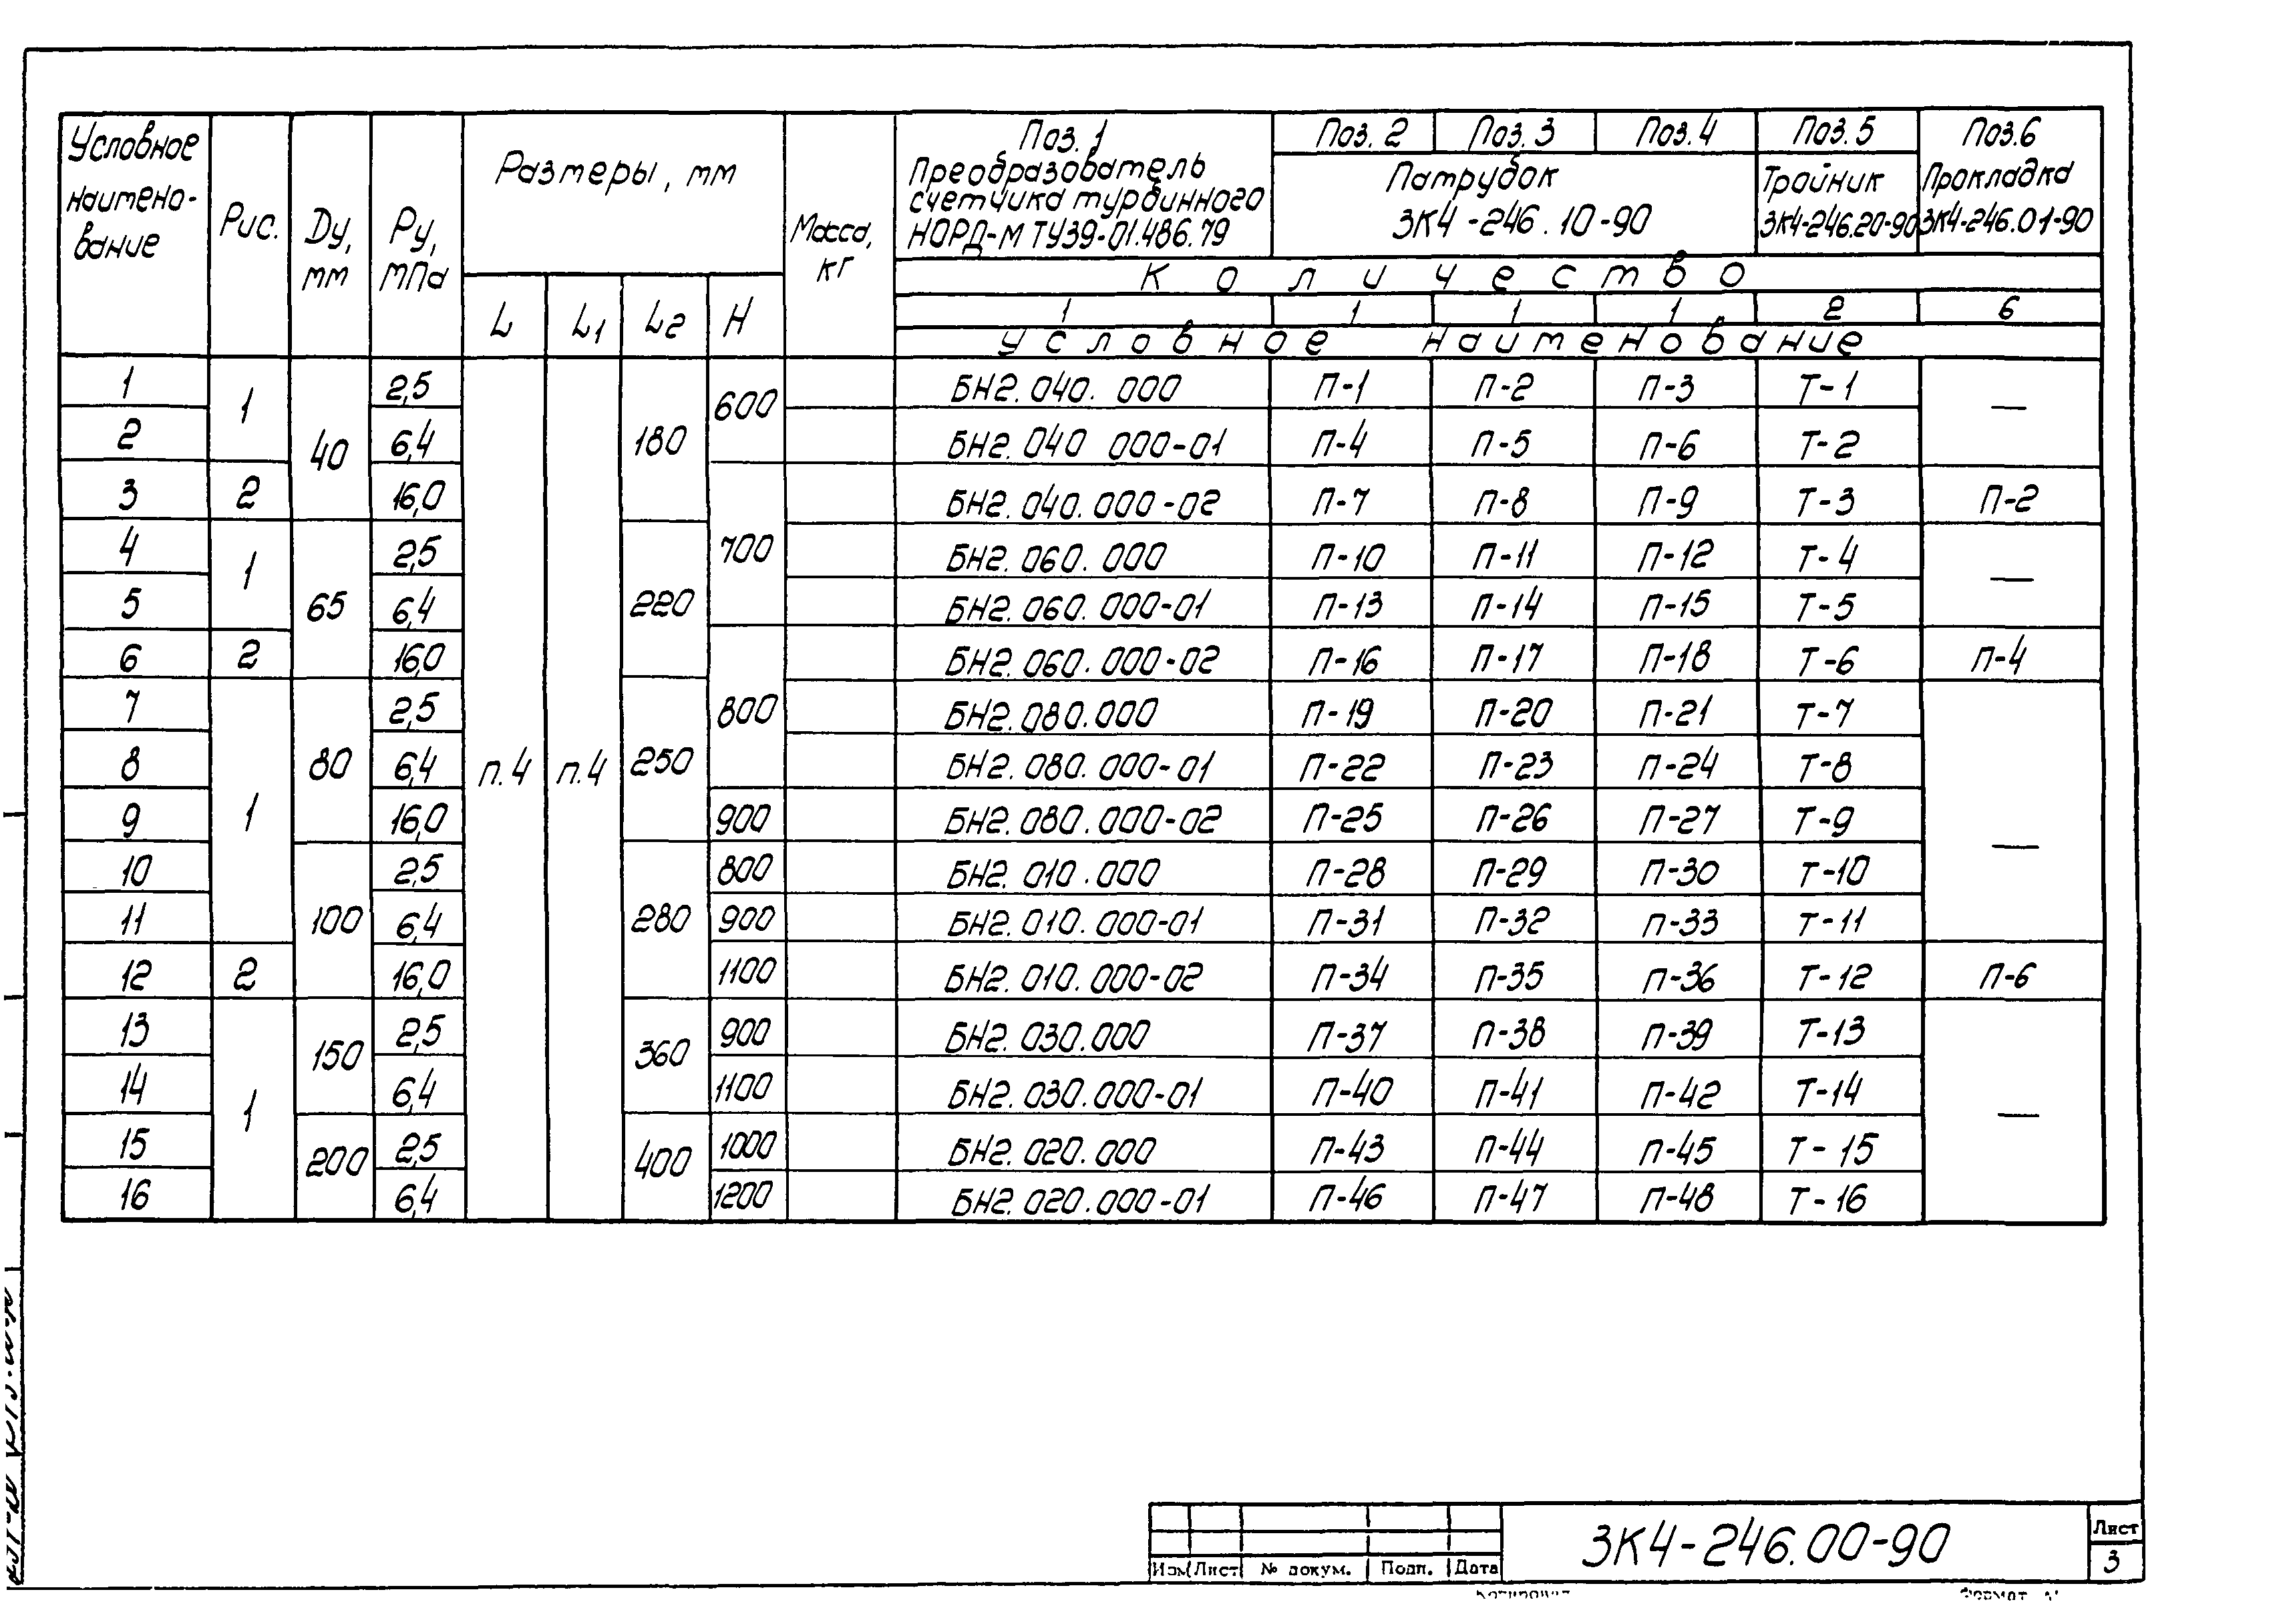 Условное наимено-вание
Рис.
Ду, мм
Ру, МПа
Размеры, мм
L L1 L2 H
Масса, кг
Поз. 1
Преобразователь
счетчика турбинного
НОРД-М ТУ39-01.486.79
Поз. 2 Поз. 3 Поз. 4
Патрубок
ЗК4-246.10-90
Поз. 5
Тройник
ЗК4-246.20-90
Поз.6
Прокладка
ЗК4-246.01-90
Количество
1 1 1 1 2 6
Условное наименование
1 1 40 2,5 п.4 п.4 180 600 БН2.040.000 П-1 П-2 П-3 Т-1 —
2 6,4 БН2.040 000-01 П-4 П-5 П-6 Т-2
3 2 16,0 700 БН2.040.000-02 П-7 П-8 П-9 Т-3 П-2
4 1 65 2,5 220 БН2.060.000 П-10 П-11 П-12 Т-4 —
5 6,4 БН2.060.000-01 П-13 П-14 П-15 Т-5
6 2 16,0 800 БН2.060.000-02 П-16 П-17 П-18 Т-6 П-4
7 1 80 2,5 250 БН2.080.000 П-19 П-20 П-21 Т-7 —
8 6,4 БН2.080.000-01 П-22 П-23 П-24 Т-8
9 16,0 900 БН2.080.000-02 П-25 П-26 П-27 Т-9
10 100 2,5 280 800 БН2.010.000 П-28 П-29 П-30 Т-10
11 6,4 900 БН2.010.000-01 П-31 П-32 П-33 Т-11
12 2 16,0 1100 БН2.010.000-02 П-34 П-35 П-36 Т-12 П-6
13 1 150 2,5 360 900 БН2.030.000 П-37 П-38 П-39 Т-13 —
14 6,4 1100 БН2.030.000-01 П-40 П-41 П-42 Т-14
15 200 2,5 400 1000 БН2.020.000 П-43 П-44 П-45 Т-15
16 6,4 1200 БН2.020.000-01 П-46 П-47 П-48 Т-16
Изм Лист № докум. Подп. Дата
ЗК4-246.00-90
Лист
3
Копировал
Формат